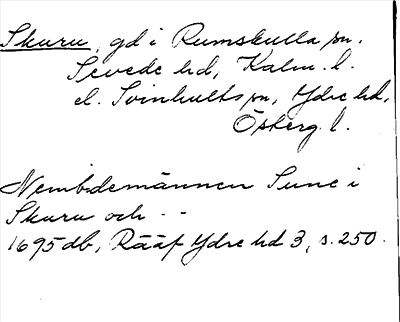 Skuru, gd i Rumskulla sn.
Sevede hd, Kalm. l.
el. Svinhults sn, Ydre hd,
Österg. l.
Nembdemännen Sune i
Skuru och - -
1695 db, Rääf Ydre hd 3, s. 250.